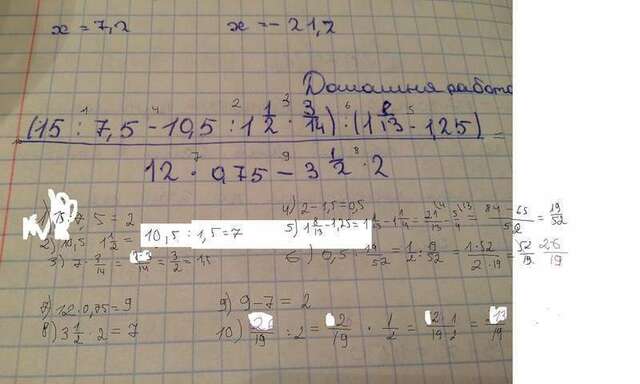 x = 7,2 x = - 21,2
Домашня работа
(15 : 7,5 - 10,5 : 1 1/2 · 3/14) : (1 8/13 - 1,25)
12 · 0,75 - 3 1/2 · 2
5 = 2
2) 10,5 1 1/2 = 10,5 : 1,5 = 7
3) 7 · 3/14 = 7·3/14 = 3/2 = 1,5
4) 2 - 1,5 = 0,5
5) 1 8/13 - 1,25 = 1 8/13 - 1 1/4 = 21/13 - 5/4 = 84 - 65/52 = 19/52
6) 0,5 : 19/52 = 1/2 : 19/52 = 1·52/2·19 = 52/19 26/19
7) 12 · 0,75 = 9
8) 3 1/2 · 2 = 7
9) 9 - 7 = 2
10) 26/19 : 2 = 2/19 · 1/2 = 2 1/19 2 = 13/19